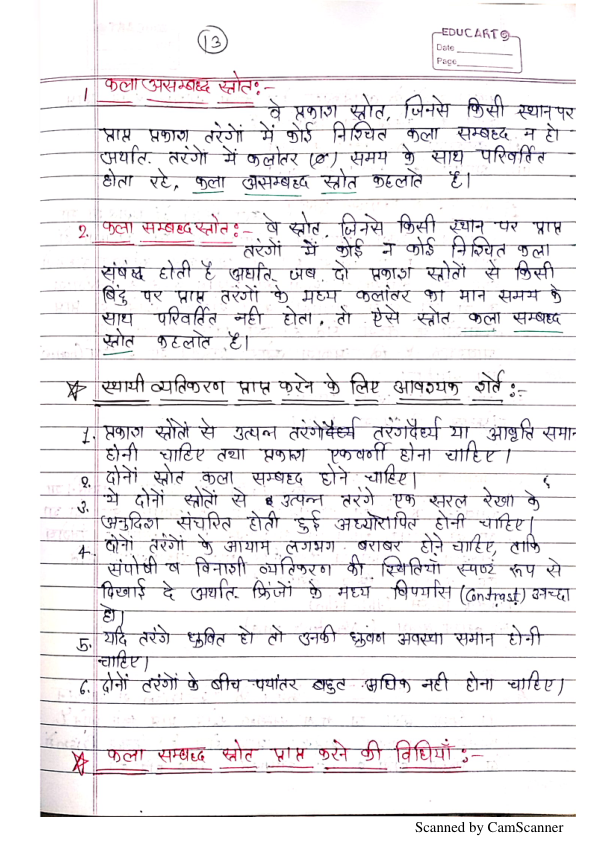 13
EDUCART
Date
Page
1 कला असम्बध्द स्त्रोत:-
वे प्रकाश स्त्रोत, जिनसे किसी स्थान पर
प्राप्त प्रकाश तरंगों में कोई निश्चित कला सम्बध्द न हो
अर्थात. तरंगों में कलांतर (ø) समय के साथ परिवर्तित
होता रहे, कला असम्बध्द स्त्रोत कहलाते है।
2. कला सम्बध्द स्त्रोत:- वे स्त्रोत, जिनसे किसी स्थान पर प्राप्त
तरंगों में कोई न कोई निश्चित कला
संबंध्द होती है अर्थात. जब दो प्रकाश स्त्रोतों से किसी
बिंदु पर प्राप्त तरंगों के मध्य कलांतर का मान समय के
साथ परिवर्तित नही होता, तो ऐसे स्त्रोत कला सम्बध्द
स्त्रोत कहलाते है।
स्थायी व्यतिकरण प्राप्त करने के लिए आवश्यक शर्ते:-
1. प्रकाश स्त्रोतों से उत्पन्न तरंगदैर्ध्य तरंगदैर्ध्य या आवृति समान
होनी चाहिए तथा प्रकाश एकवर्णी होना चाहिए।
2. दोनों स्त्रोत कला सम्बध्द होने चाहिए।
3. ये दोनों स्त्रोतों से उत्पन्न तरंगे एक सरल रेखा के
अनुदिश संचरित होती हुई अध्यारोपित होनी चाहिए।
4. दोनों तरंगों के आयाम लगभग बराबर होने चाहिए, ताकि
संपोषी व विनाशी व्यतिकरण की स्थितियाँ स्पष्ट रूप से
दिखाई दे अर्थात. फ्रिंजों के मध्य विपर्यास (Contrast) अच्छा
हो।
5. यदि तरंगे ध्रुवित हो तो उनकी ध्रुवण अवस्था समान होनी
चाहिए।
6. दोनों तरंगों के बीच पथांतर बहुत अधिक नही होना चाहिए।
कला सम्बध्द स्त्रोत प्राप्त करने की विधियाँ:-
Scanned by CamScanner